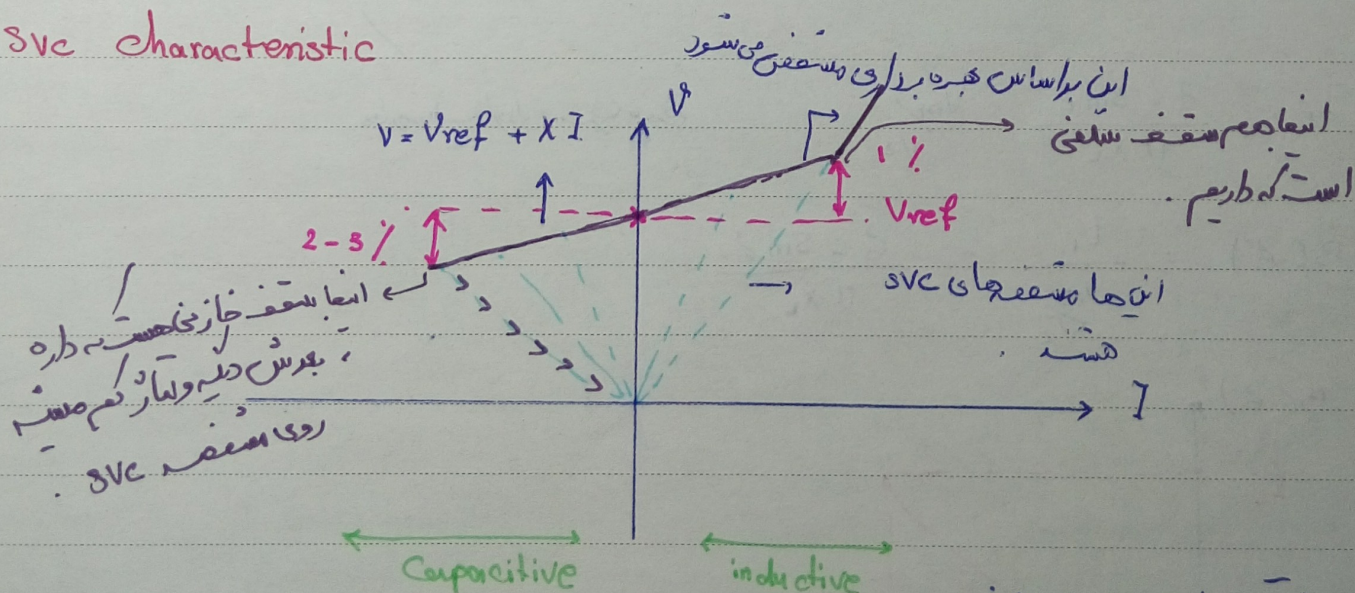 SVC characteristic
این براساس بهره برداری مشخص می شود
V
V = Vref + X I
1 %
اینجا هم سقف سلفی
است که داریم.
Vref
2-3 %
این ها مشخصه های SVC
هستند.
اینجا سقف خازنی هست که داره
بعدش دیگه ولتاژ کم میشه
روی مشخصه SVC.
I
Capacitive
inductive